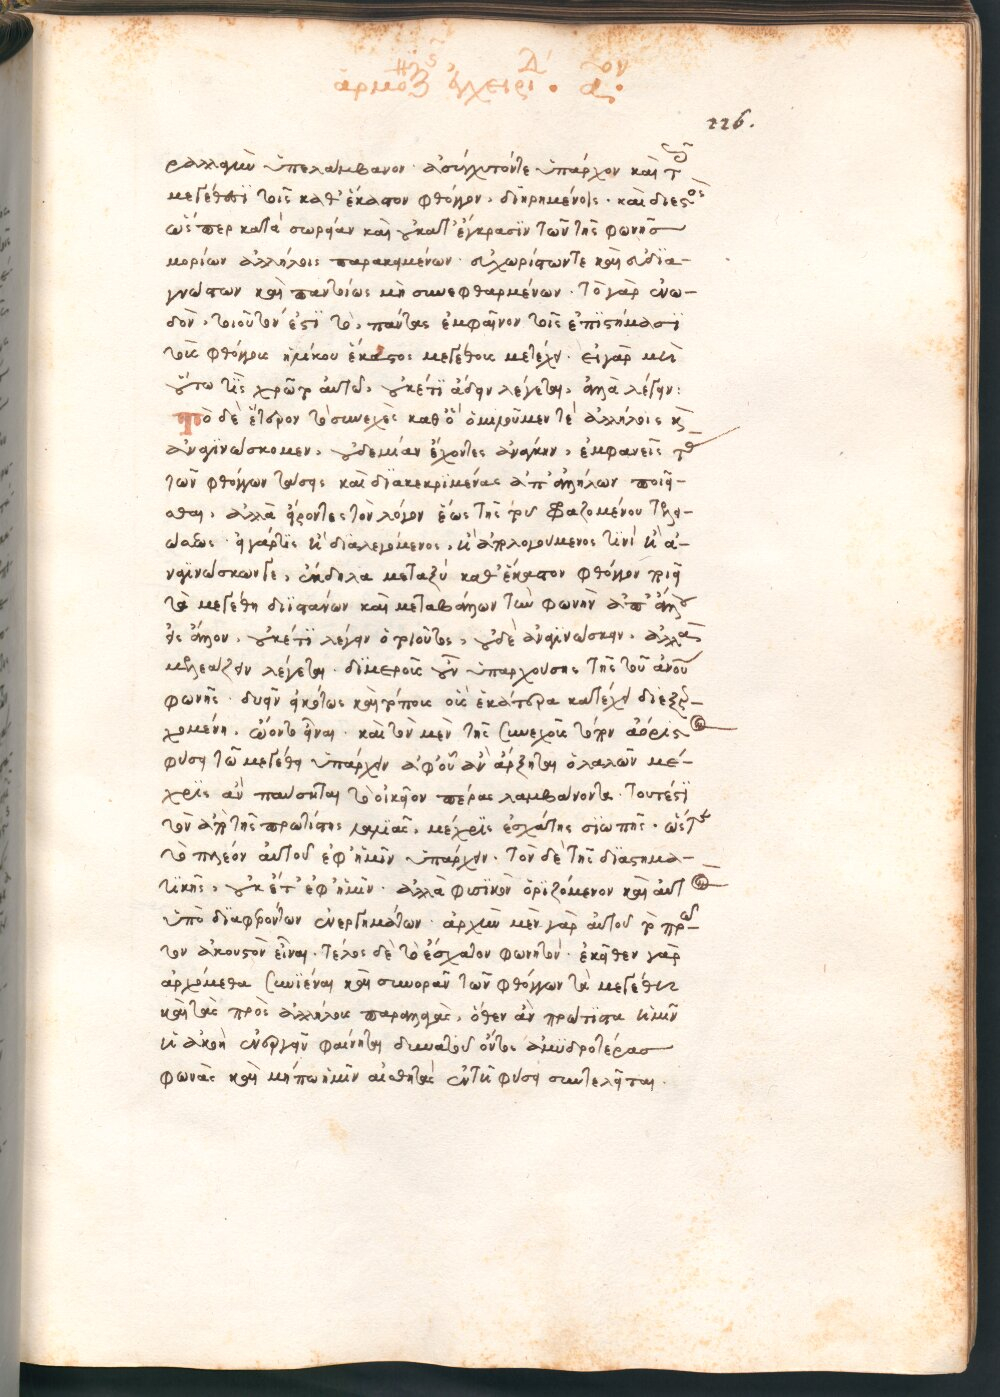 ἁρμονι^κῆς ἐγχειρι^Δ. α^ον.
226.
ραλλαγὴν ὑπελάμβανον· ἀσύγχυτόν τε ὑπάρχον καὶ τοῖς
μεγέθεσι τοῖς καθ' ἕκαστον φθόγγον, διηρημένοις· καὶ διεστὸς
ὥσπερ κατὰ σωρείαν καὶ οὐ κατ' ἔγκρασιν τῶν τῆς φωνῆς
μορίων ἀλλήλοις παρακειμένων· εὐχωρίστων τε καὶ εὐδια-
γνώστων καὶ παντοίως μὴ συνεφθαρμένων· τὸ γὰρ ἐνω-
δὸν, τοιοῦτόν ἐστι τὸ, πάντας ἐμφαῖνον τοῖς ἐπιστήμοσι
τοὺς φθόγγους ἡλίκου ἕκαστος μεγέθους μετέχει· εἰ γὰρ μὴ
οὕτω τις χρῷτο αὐτῷ, οὐκέτι ἄδειν λέγεται, ἀλλὰ λέγειν:
Τὸ δὲ ἕτερον τὸ συνεχὲς καθ' ὃ ὁμιλοῦμέν τε ἀλλήλοις κ̀
ἀναγινώσκομεν, οὐδεμίαν ἔχοντες ἀνάγκην, ἐμφανεῖς τὰς
τῶν φθόγγων τάσεις καὶ διακεκριμένας ἀπ' ἀλλήλων ποιεῖ-
σθαι, ἀλλὰ εἴροντες τὸν λόγον ἕως τῆς τοῦ φραζομένου τελει-
ώσεως· εἰ γάρ τις ἢ διαλεγόμενος, ἢ ἀπολογούμενος τινὶ ἢ ἀ-
ναγινώσκων τε, ἔκδηλα μεταξὺ καθ' ἕκαστον φθόγγον ποιεῖ
τὰ μεγέθη διϊστάνων καὶ μεταβάλλων τὴν φωνὴν ἀπ' ἄλλου
εἰς ἄλλον, οὐκέτι λέγειν ὁ τοιοῦτος, οὐδὲ ἀναγινώσκειν, ἀλλὰ
μελεάζειν λέγεται· διμεροῦς οὖν ὑπαρχούσης τῆς τοῦ ἀνου
φωνῆς· δυεῖν εἰκότως καὶ τόπους οὓς ἑκατέρα κατέχει διεξερ-
χομένη, ᾤοντο εἶναι· καὶ τὸν μὲν τῆς συνεχοῦς τόπον ἀόριστον
φύσει τῷ μεγέθει ὑπάρχειν ἀφ' οὗ ἂν ἄρξηται ὁ λαλῶν μέ-
χρις ἂν παύσηται τὸ οἰκεῖον πέρας λαμβάνοντα· τουτέστι
τὸν ἀπὸ τῆς πρωτίστης λαλιᾶς, μέχρις ἐσχάτης σιωπῆς· ὥστε
τὸ πλέον αὐτοῦ ἐφ' ἡμῖν ὑπάρχειν· τὸν δὲ τῆς διαστημα-
τικῆς, οὐκέτ' ἐφ' ἡμῖν· ἀλλὰ φυσικὸν ὁριζόμενον καὶ αὐτὸν
ὑπὸ διαφερόντων ἐνεργημάτων· ἀρχὴν μὲν γὰρ αὐτοῦ τὸ πρῶ
τον ἀκουστὸν εἶναι· τέλος δὲ τὸ ἔσχατον φωνητόν· ἐκεῖθεν γὰρ
ἀρχόμεθα συνιέναι καὶ συνορᾶν τῶν φθόγγων τὰ μεγέθη
καὶ τὰς πρὸς ἀλλήλους παραλλαγὰς, ὅθεν ἂν πρώτιστα ἡμῖν
ἡ ἀκοὴ ἐνεργεῖν φαίνηται δυνατοῦ ὄντος ἀμυδροτέρας
φωνὰς καὶ μήπω ἡμῖν αἰσθητὰς ἐν τῇ φύσει συντελεῖσθαι.